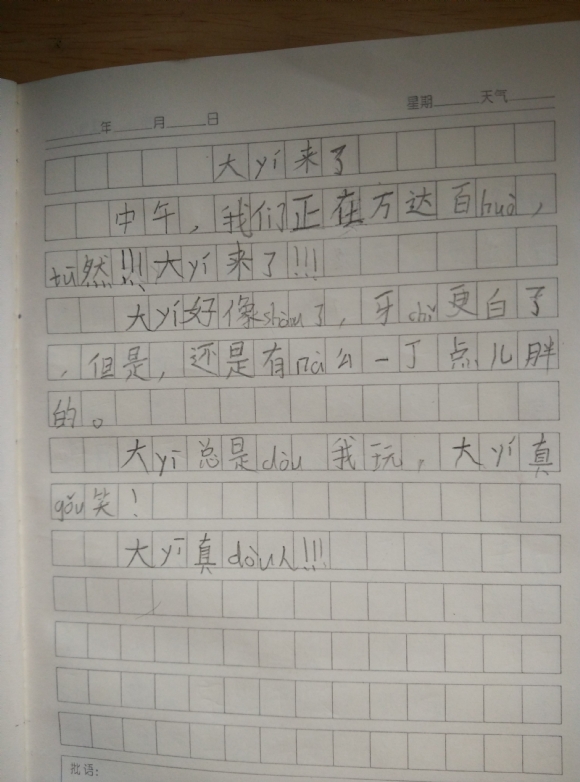 年 月 日 星期 天气
大yí来了
中午，我们正在方达百huò，
tū然!!!大yí来了!!!
大yí好像shòu了，牙chǐ更白了
，但是，还是有nà么一丁点儿胖
的。
大yí总是dòu 我玩，大yí真
gǎu笑！
大yí真dòu人!!!
批语: